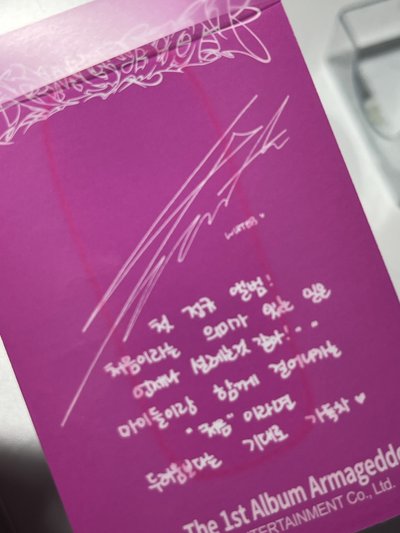 WINTER ♥
첫 정규 앨범!
처음이라는 의미가 있는 일은
언제나 설레는것 같아! ~
마이들이랑 함께 걸어나가는
"처음" 이라면
두려움보다는 기대로 가득차 ♥
The 1st Album Armageddo
ENTERTAINMENT Co., Ltd.